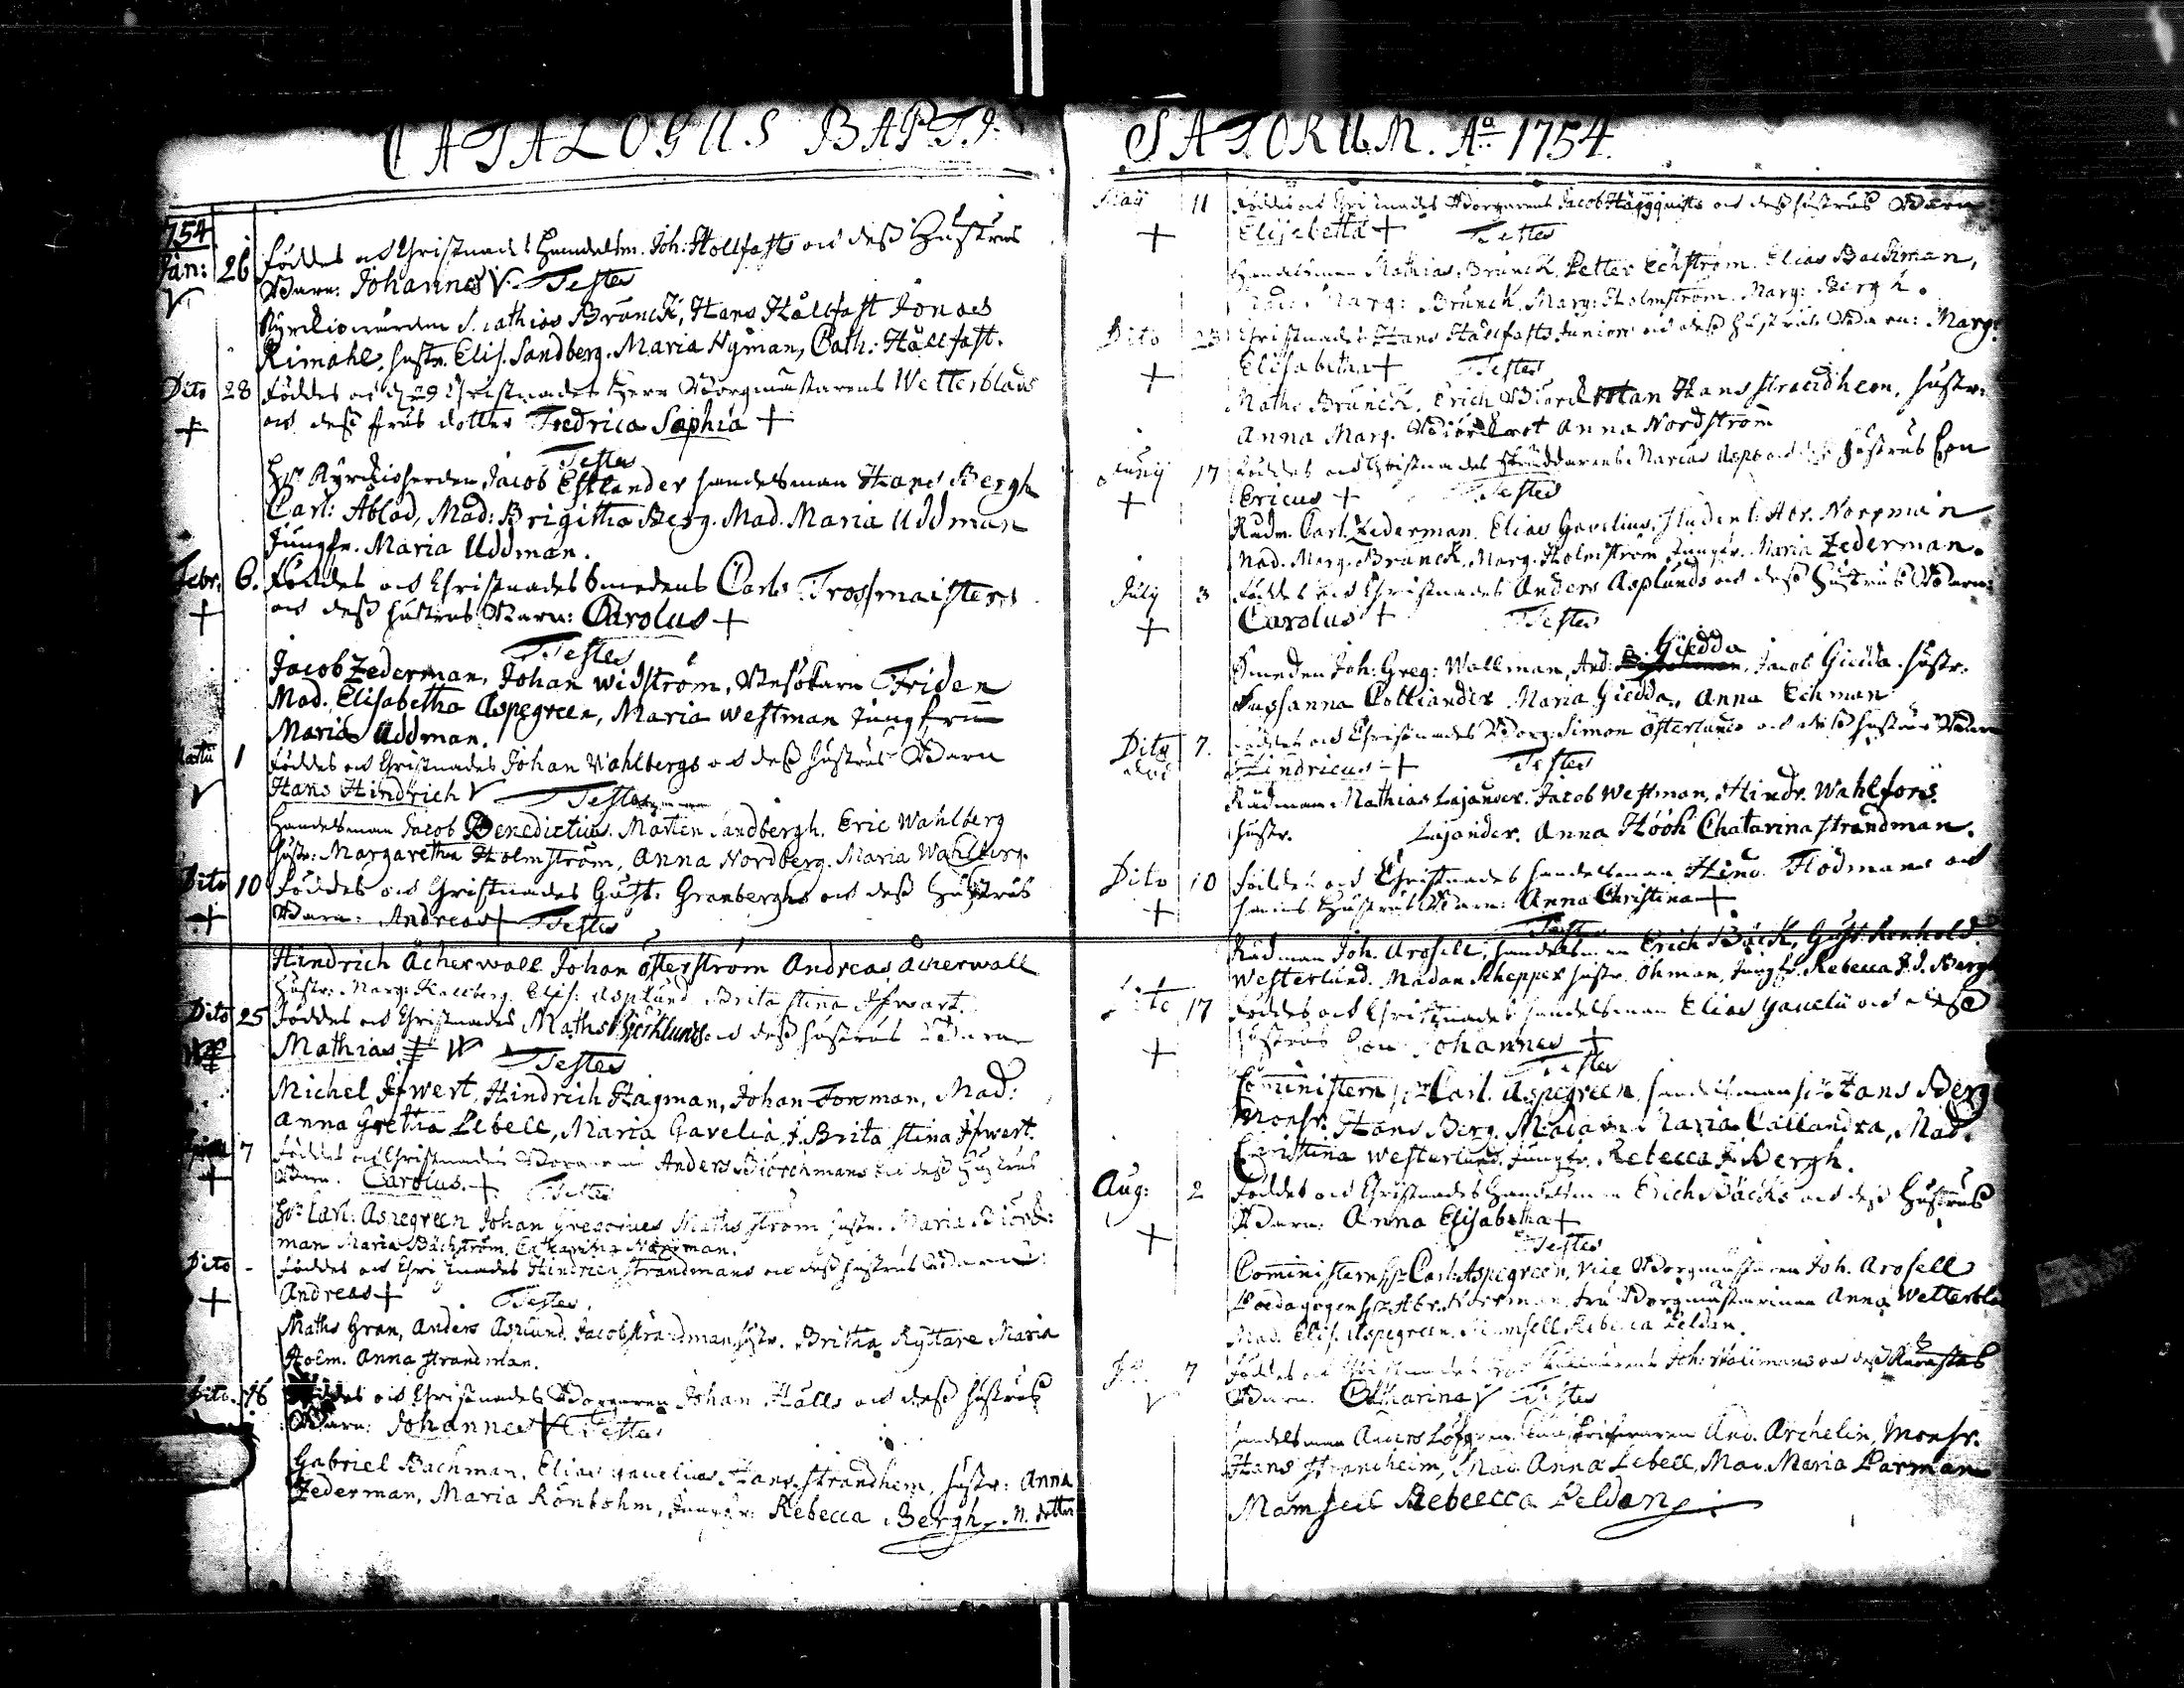 CATALOGUS BAPTI
1754
Jan: 26 föddes och Christnades Handelsm. Joh: Hollfasts och dess Hustrus
Barn: Johannes V. Testes
Kyrckiowärden Mathias Brunck, Hans Hållfast Jonas
Rimahl, hustr. Elis. Sandberg. Maria Nyman, Cath: Hållfast.
Dito 28 föddes och d. 29 Christnades Herr Borgmästarens Wetterblads
och dess frus dotter Fredrica Sophia +
Testes
Hr Kyrckioherden Jacob Estlander handelsman Hans Bergh
Carl: Ablad, Mad: Brigitha Berg. Mad. Maria Uddman
Jungfr. Maria Uddman.
Febr. 6. Föddes och Christnades Smedens Carls Trossmaisters
+ och dess hustrus Barn: Carolus +
Testes
Jacob Zederman, Johan Widström, Friden
Mad. Elisabetha Aspegreen, Maria Westman Jungfrun
Maria Uddman.
Martii 1 föddes och Christnades Johan Wahlbergs och dess hustrus Barn
V Hans Hindrich V Testes
Handelsman Jacob Benedictius. Mårten Sandbergh. Eric Wahlberg
hustr: Margaretha Holmström, Anna Nordberg. Maria Wahlberg.
Dito 10 föddes och Christnades Gust. Granberghs och dess Hustrus
+ Barn: Andreas + Testes
Hindrich Åcherwall Johan Österström Andreas Åcherwall
Hustr: Marg: Kallberg. Elis: Asplund Brita Stina Ifwart.
Dito 25 föddes och Christnades Maths Biörklunds och dess hustrus Barn
Mathias Testes
Michel Ifwert, Hindrich Hagman, Johan Forsman, Mad:
Anna Gretha Lebell, Maria Gavelia, J. Brita Stina Ifwert.
7 föddes och Christnades Borgaren Anders Biörchmans och dess Hustrus
+ Barn. Carolus. + Testes
Hr Carl: Aspegreen Johan Gregorius Maths Ström hustr. Maria Biörck:
man Maria Bächström, Catharina Norrman.
Dito - föddes och Christnades Hindrich Strandmans och dess hustrus Barn:
+ Andreas + Testes.
Maths Gran, Anders Asplund. Jacob Strandman, hustr. Britha Ryttare Maria
Holm. Anna Strandman.
Dito. 16 föddes och Christnades Borgaren Johan Hålls och dess hustrus
Barn: Johannes Testes
Gabriel Bachman. Elias Gavelius. Hans Strandhem, hustr: Anna
Zederman, Maria Rönbohm, Jungfr: Rebecca Bergh. M. dotter
SATORUM. Ao 1754.
May 11 föddes och Christnades Borgarens Jacob Häggquists och dess hustrus Barn
+ Elisabetha + Testes
Handelsman Mathias Brunck, Petter Echström. Elias Backman,
Mad: Marg: Brunck, Marg: Holmström. Marg: Bergh.
Dito 23 Christnades Hans Hållfasts Junior och dess hustrus Barn: Marg:
+ Elisabetha + Testes
Maths Brunck, Erich Hans Strandhem, hustr:
Anna Marg. Anna Nordström
Junij 17 föddes och Christnades Skräddarens Marcus Asps och dess hustrus Son
+ Ericus + Testes
Rådm. Carl Zederman. Elias Gavelius, Student: Abr. Norrman
Mad. Marg. Brunck, Marg. Holmström, Jungfr. Maria Zederman.
July 3 föddes och Christnades Anders Asplunds och dess Hustrus Barn:
+ Carolus + Testes
Giedda
Smeden Joh: Greg: Wallman, And: Jacob Giedda. hustr.
Sussanna Colliander Maria Giedda, Anna Echman
Dito 7. föddes och Christnades Borg. Simon Österlunds och dess hustrus Barn
död Hindricus + Testes
Rådman Mathias Lajander. Jacob Westman, Hindr. Wahlfors
hustr. Lajander. Anna Höök Chatarina Strandman.
Dito 10 föddes och Christnades handelsman Hind. Flodmans och
+ hans Hustrus Barn: Anna Christina +
Testes
Rådman Joh. Arosell, handelsman Erich Bäck, Gust. Renhold
Westerlund. Madam Schepper hustr. Öhman, Jungfr. Rebecca J. J. Berg
Dito 17 föddes och Christnades handelsman Elias Gavelii och dess
+ hustrus Son Johannes +
Testes
Comministern Hr Carl. Aspegreen, handelsman Hr Hans Berg
Monsr. Hans Berg. Madam Maria Callandra, Mad.
Christina Westerlund. Jungfr. Rebecca J. Bergh.
Aug: 2 föddes och Christnades Handelsman Erich Bäcks och dess Hustrus
+ Barn: Anna Elisabetha +
Testes
Comministern Hr Carl: Aspegreen, Vice Borgmästaren Joh. Arosell
Pædagogen Hr Abr. Norrman, fru Borgmästarinnan Anna Wetterbla
Mad. Elis. Aspegreen. Mamsell Rebecca Peldan.
7 föddes och Christnades Joh: Wallmans och dess
V Barn. Catharina V Testes
handelsman Anders Löfgren. And. Archelin, Monsr.
Hans Strandheim, Mad. Anna Lebell, Mad. Maria Parman
Mamsell Rebecca Peldan.